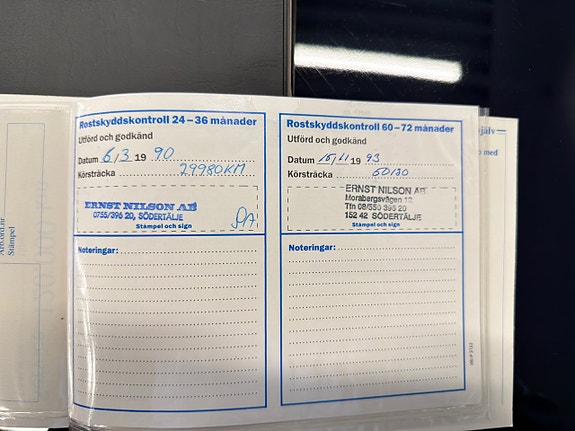 Rostskyddskontroll 24–36 månader
Utförd och godkänd
Datum 6/3 19 90
Körsträcka 29980 KM
ERNST NILSON AB
0755/396 20, SÖDERTÄLJE
Stämpel och sign
Noteringar:
Rostskyddskontroll 60–72 månader
Utförd och godkänd
Datum 15/11 19 93
Körsträcka
ERNST NILSON AB
Morabergsvägen 12
Tfn 08/550 396 20
152 42 SÖDERTÄLJE
Stämpel och sign
Noteringar:
Arb.ord.nr
Stämpel
själv
med